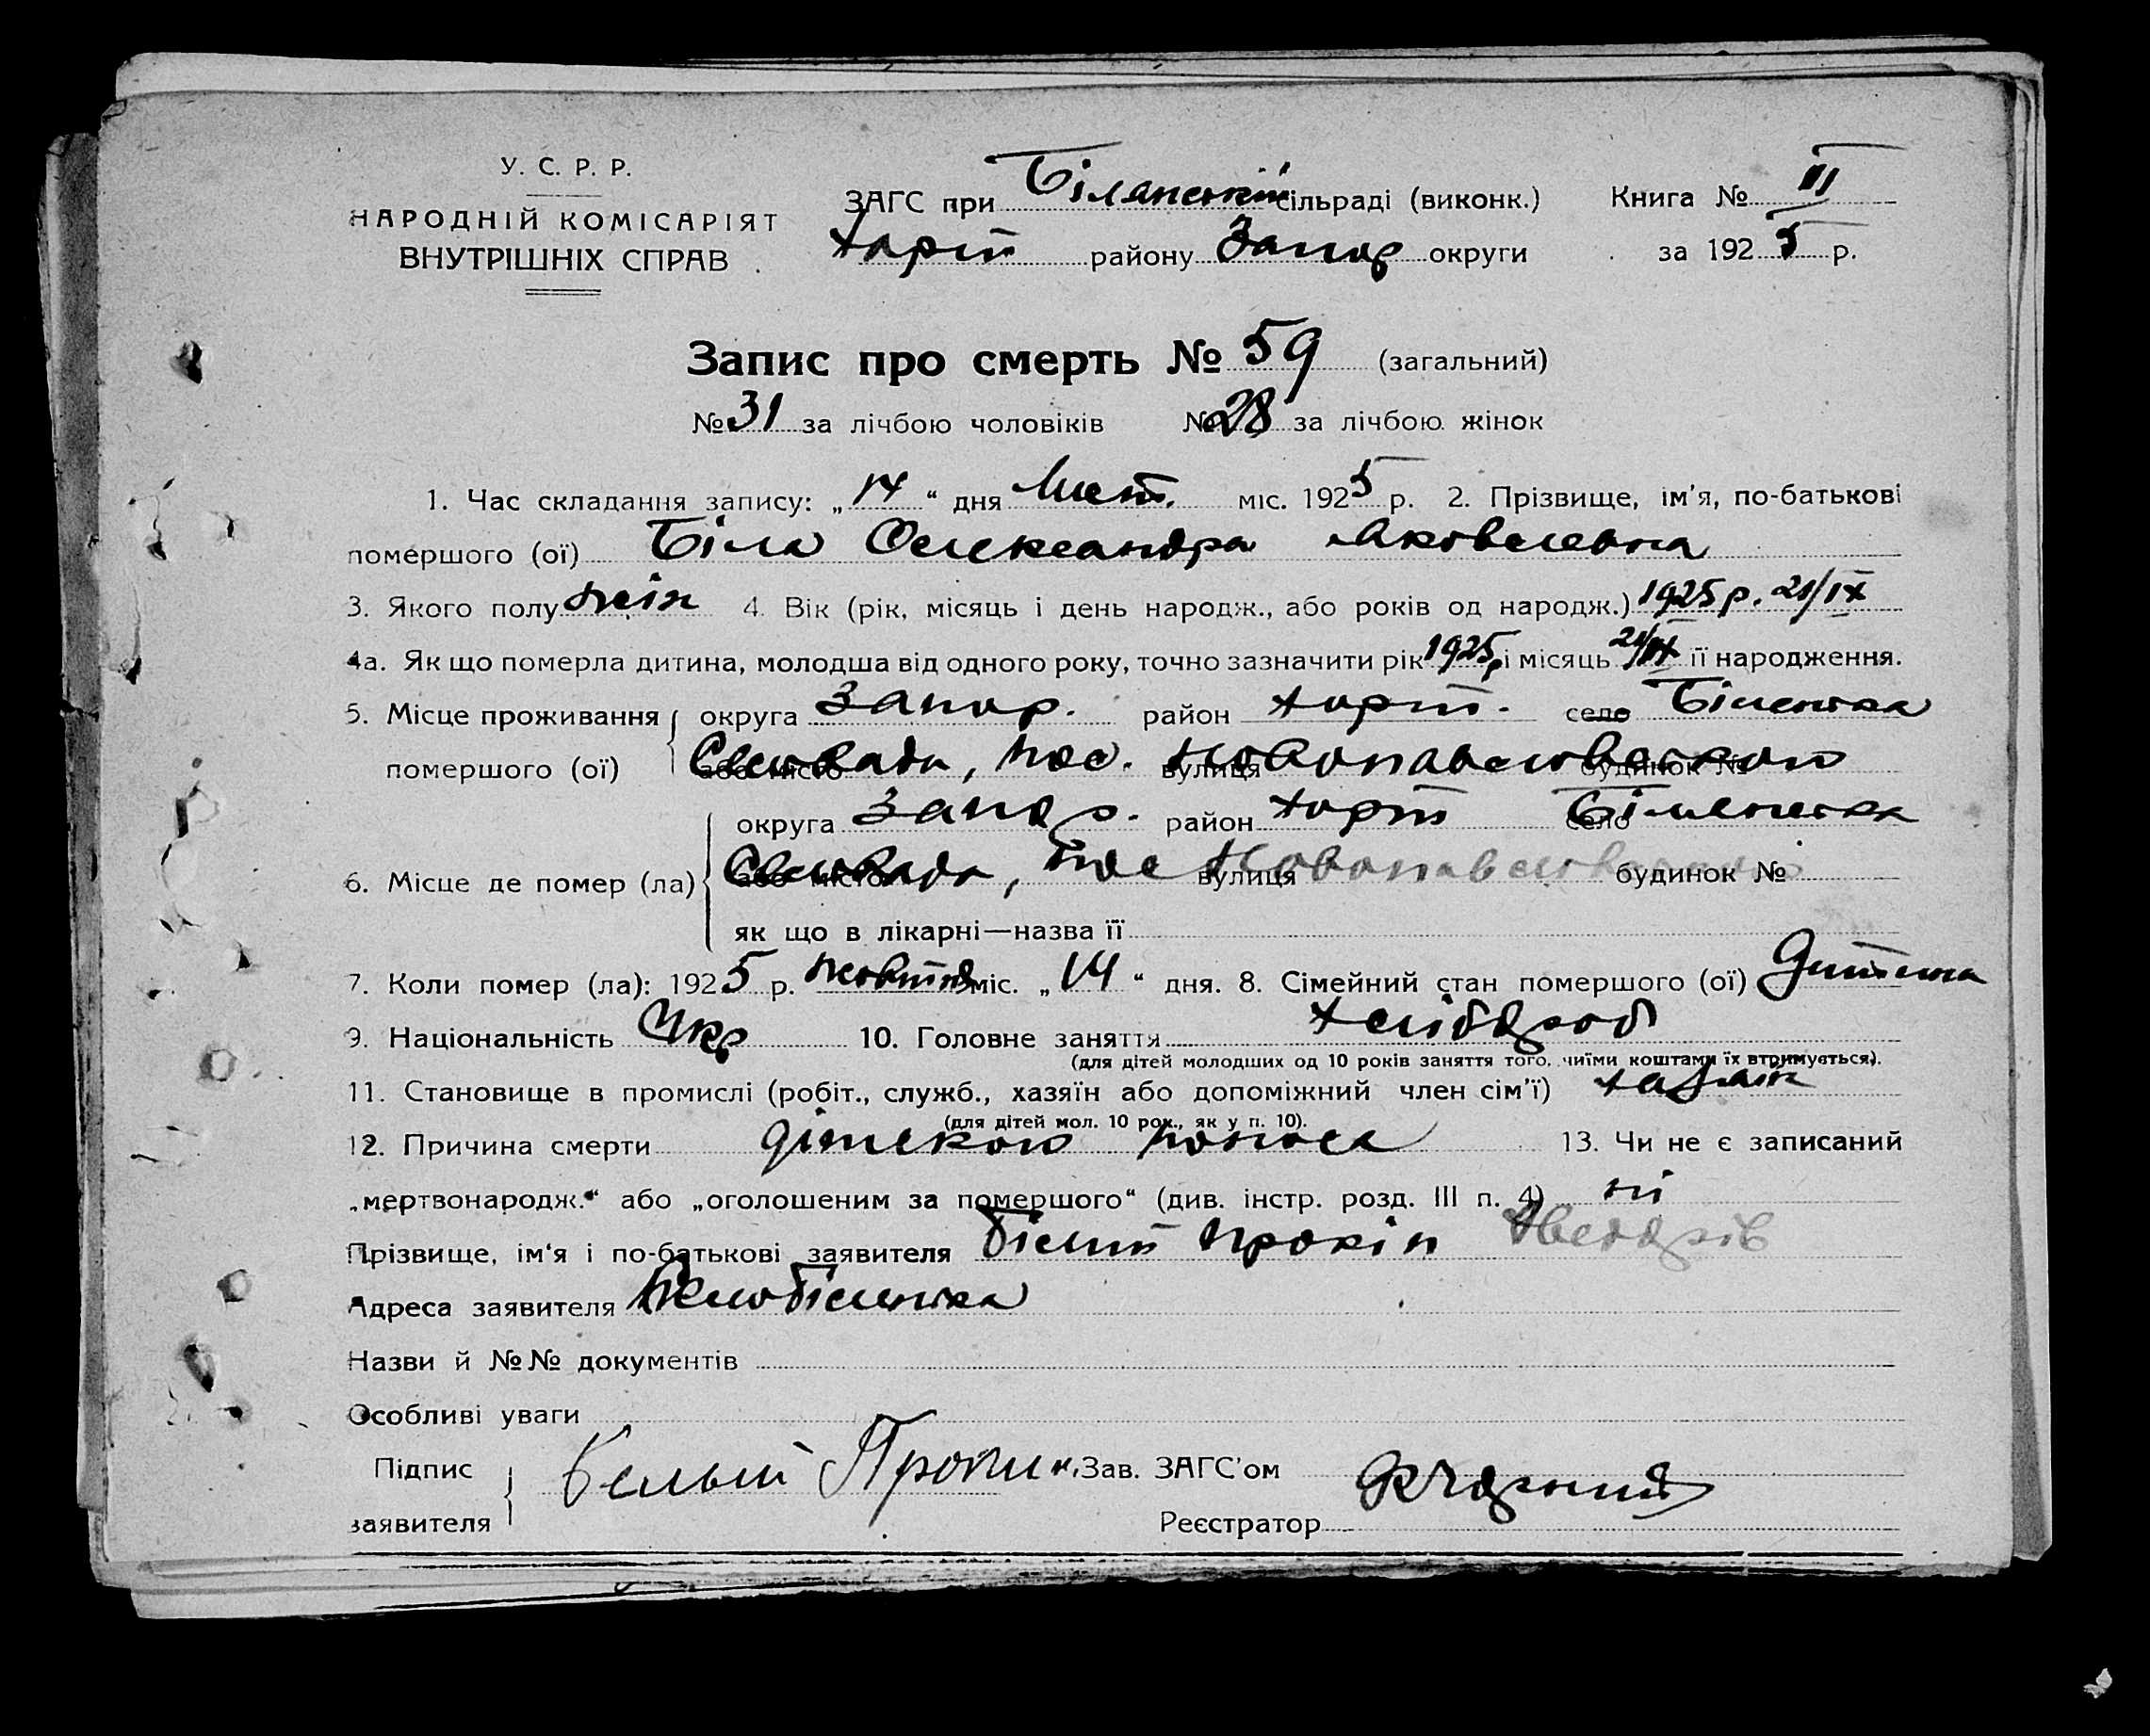 У. С. Р. Р.
НАРОДНІЙ КОМІСАРІЯТ
ВНУТРІШНІХ СПРАВ
ЗАГС при Біланській сільраді (виконк.)
Хорт району Запор округи
Книга № III
за 1925 р.
Запис про смерть № 59 (загальний)
№ 31 за лічбою чоловіків № 28 за лічбою жінок
1. Час складання запису: „14“ дня Лист. міс. 1925 р. 2. Прізвище, ім'я, по-батькові
помершого (ої) Біла Олександра Яковлевна
3. Якого полу жін 4. Вік (рік, місяць і день народж., або років од народж.) 1925 р. 21/IX
4а. Як що померла дитина, молодша від одного року, точно зазначити рік 1925 р і місяць 21/IX її народження.
5. Місце проживання округа Запор. район Хорт. село Біленька
помершого (ої) або місто Сільрада, пос. вулиця Новопавловського будинок №
округа Запор. район Хорт село Біленька
6. Місце де помер (ла) або місто Сільрада, пос вулиця будинок №
як що в лікарні—назва її
7. Коли помер (ла): 1925 р. жовтня міс. „14“ дня. 8. Сімейний стан помершого (ої) Дитина
9. Національність Укр 10. Головне заняття Хлібороб
(для дітей молодших од 10 років заняття того, чиїми коштами їх втримується).
11. Становище в промислі (робіт., служб., хазяїн або допоміжний член сім'ї) хазяїн
(для дітей мол. 10 рок., як у п. 10).
12. Причина смерти дітского поноса 13. Чи не є записаний
„мертвонародж.“ або „оголошеним за помершого“ (див. інстр. розд. III п. 4) ні
Прізвище, ім'я і по-батькові заявителя Білий Прокіп
Адреса заявителя
Назви й №№ документів
Особливі уваги
Підпис заявителя Белый Прокип
Зав. ЗАГС'ом
Реєстратор